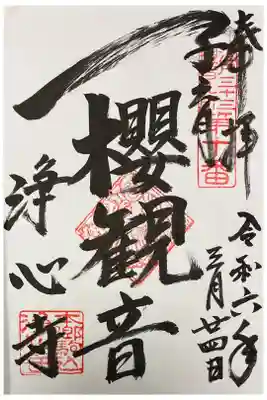 奉拝
子育
櫻観音
浄心寺
令和六年
三月廿四日
第十番